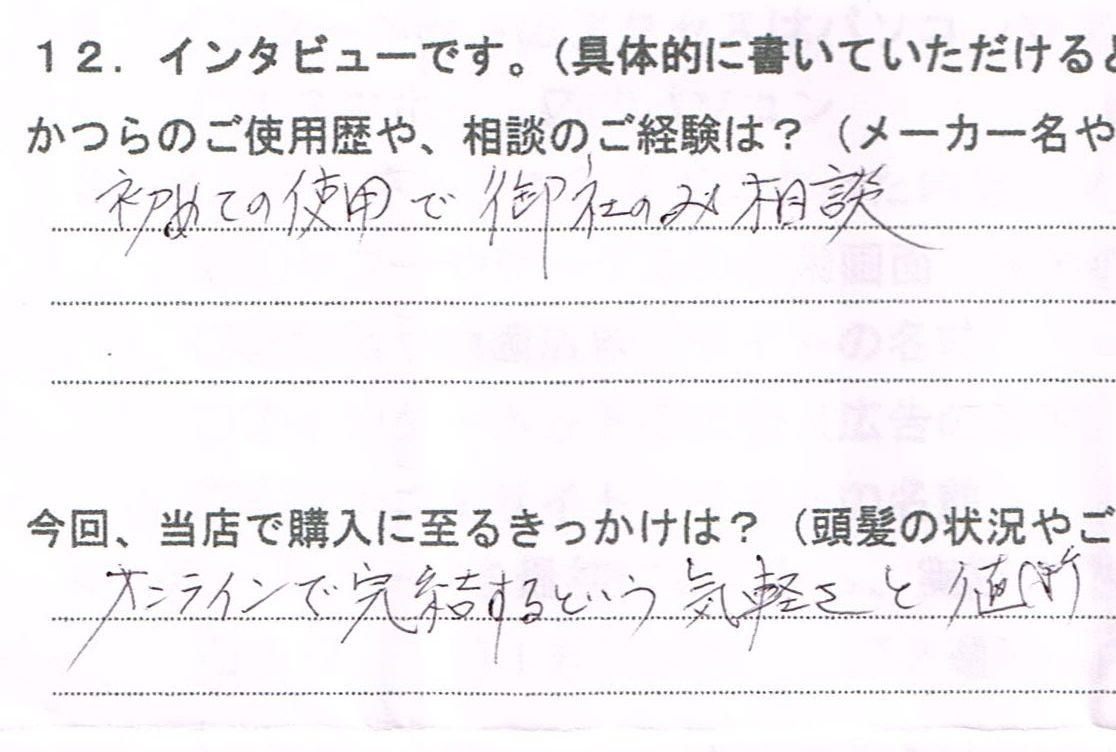 １２．インタビューです。（具体的に書いていただけると
かつらのご使用歴や、相談のご経験は？（メーカー名や
初めての使用で御社のみ相談
今回、当店で購入に至るきっかけは？（頭髪の状況やご
オンラインで完結するという気軽さと値